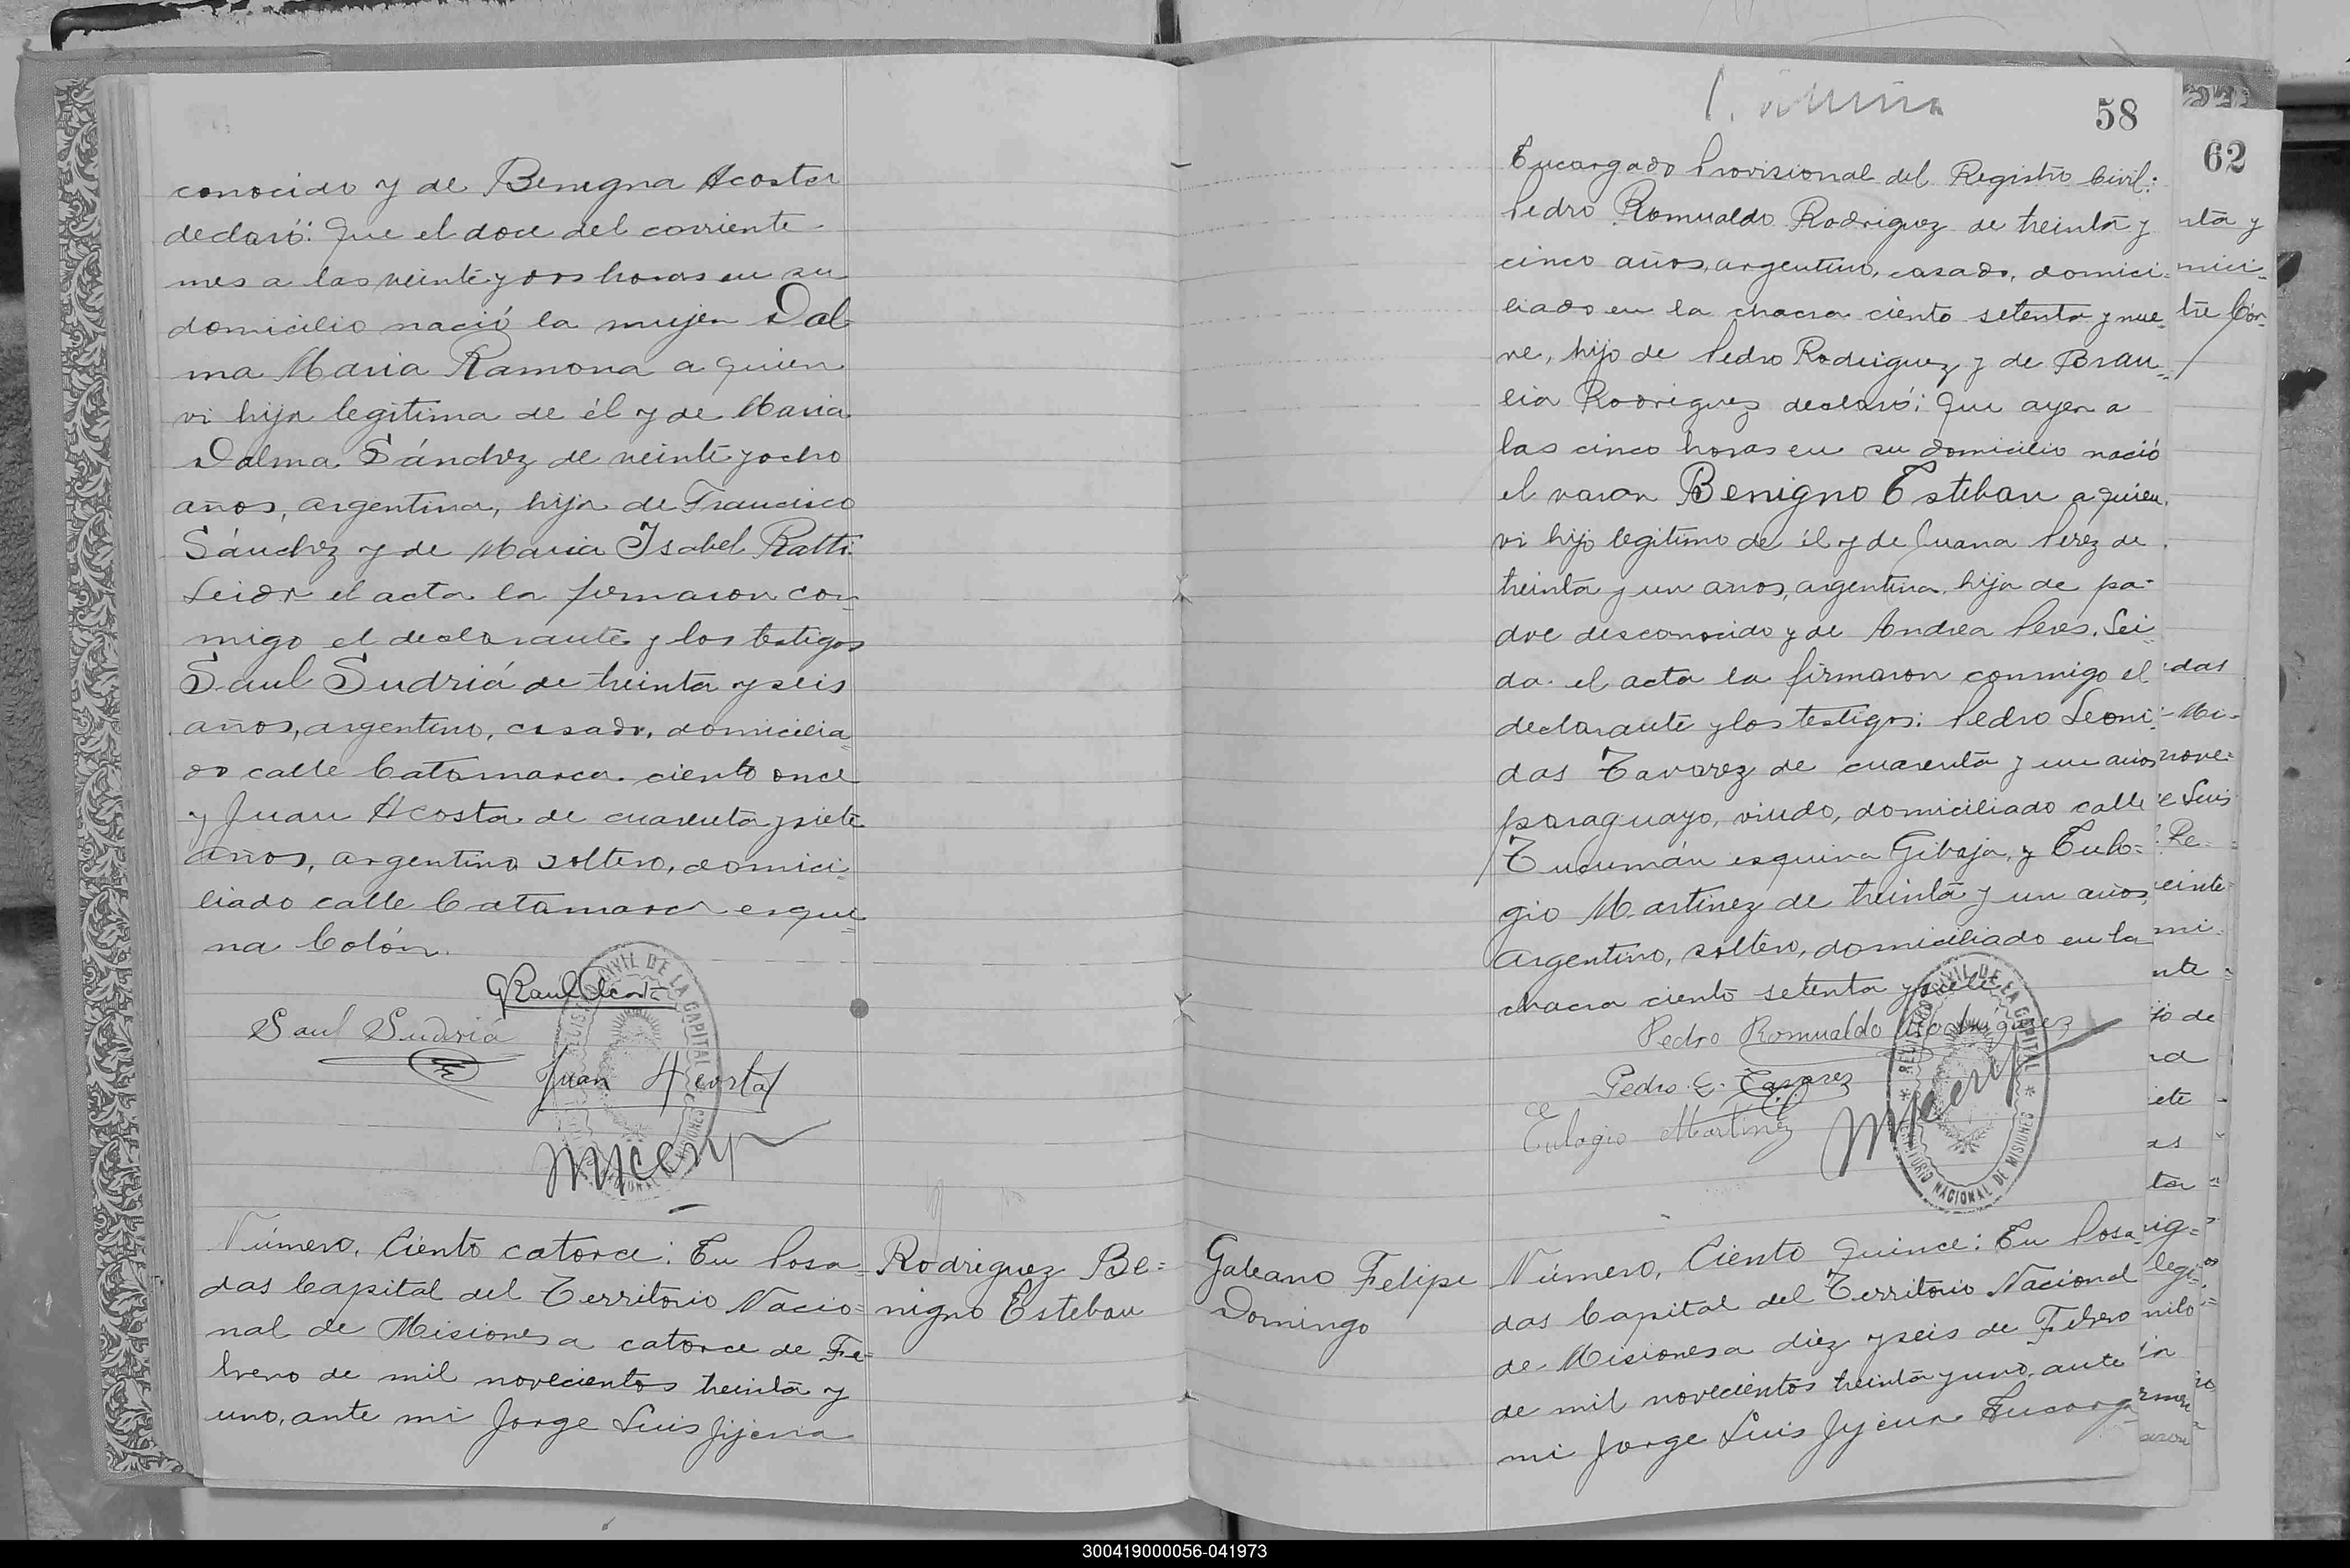 conocido y de Benigna Acosta
declaró: Que el doce del corriente
mes a las veinte y dos horas en su
domicilio nació la mujer Dal-
ma Maria Ramona a quien
vi hija legitima de él y de Maria
Dalma Sánchez de veinte y ocho
años, argentina, hija de Francisco
Sánchez y de Maria Isabel Ratti.
Leida el acta la firmaron con-
migo el declarante y los testigos
Saul Sudriá de treinta y seis
años, argentino, casado, domicilia-
do calle Catamarca ciento once
y Juan Acosta de cuarenta y siete
años, argentino soltero, domici-
liado calle Catamarca esqui-
na Colón.
Raul Acosta
Saul Sudriá
Juan Acosta
Número, Ciento catorce: En Posa-
das Capital del Territorio Nacio=
nal de Misiones a catorce de Fe=
brero de mil novecientos treinta y
uno, ante mi Jorge Luis Jijena
Rodriguez Be=
nigno Esteban
58
Encargado Provisional del Registro Civil:
Pedro Romualdo Rodriguez de treinta y
cinco años, argentino, casado, domici-
liado en la chacra ciento setenta y nue-
ve, hijo de Pedro Rodriguez y de Brau-
lia Rodriguez declaró: Que ayer a
las cinco horas en su domicilio nació
el varon Benigno Esteban a quien
vi hijo legitimo de él y de Juana Perez de
treinta y un años, argentina, hija de pa-
dre desconocido y de Andrea Peres. Lei-
da el acta la firmaron conmigo el
declarante y los testigos: Pedro Leoni-
das Tavarez de cuarenta y un años
paraguayo, viudo, domiciliado calle
Tucumán esquina Gibaja, y Eulo=
gio Martinez de treinta y un años,
argentino, soltero, domiciliado en la
chacra ciento setenta y siete
Pedro Romualdo Rodriguez
Pedro L. Tavarez
Eulogio Martinez
REGISTRO CIVIL DE LA CAPITAL
TERRITORIO NACIONAL DE MISIONES
Galeano Felipe
Domingo
Número, Ciento Quince: En Posa-
das Capital del Territorio Nacional
de Misiones a diez y seis de Febrero
de mil novecientos treinta y uno, ante
mi Jorge Luis Jijena Encarga
62
300419000056-041973